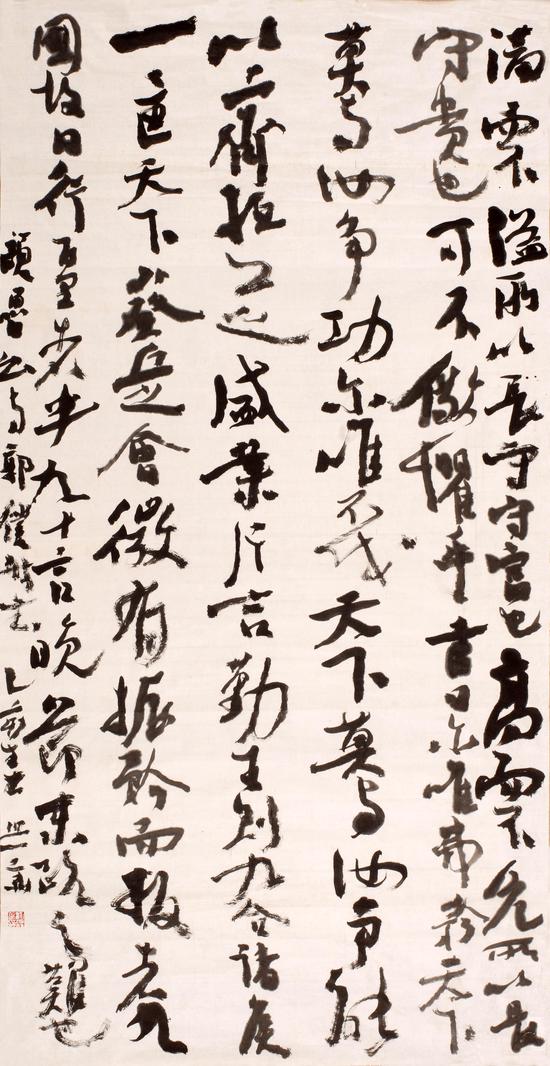 滿而不溢所以長守守富也高而不危所以長
守貴也可不儆懼乎書曰尔唯弗矜天下
莫与汝争功尔唯不伐天下莫与汝争能
以齊桓公之盛業片言勤王則九合諸侯
一匡天下葵丘之會微有振矜而叛者九
國故曰行百里者半九十言晚節末路之難也
顏魯公与郭僕射書